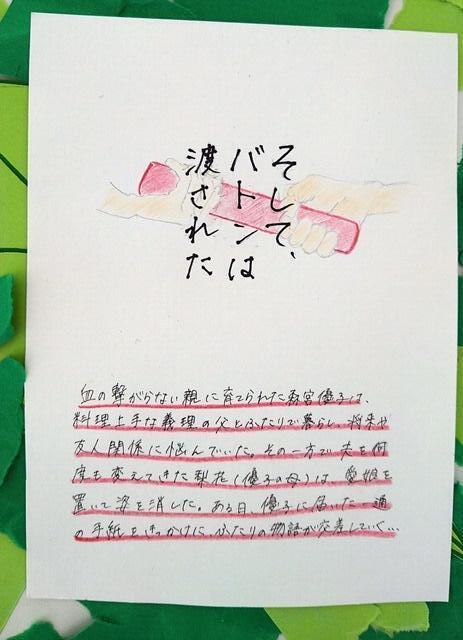 そして、
バトンは
渡された
血の繋がらない親に育てられた森宮優子は、
料理上手な義理の父とふたりで暮らし、将来や
友人関係に悩んでいた。その一方で夫を何
度も変えてきた梨花(優子の母)は、愛娘を
置いて姿を消した。ある日、優子に届いた一通
の手紙をきっかけに、ふたりの物語が交差していく…